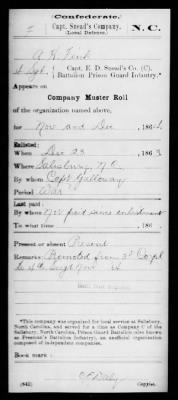 Confederate.
Capt. Snead's Co.
(Local Defense).
N.C.
A. H. Fink
Sgt., Capt. E. D. Snead's Co. (C),
Battalion Prison Guard Infantry.*
Appears on
Company Muster Roll
of the organization named above,
for Nov and Dec , 1864.
Enlisted:
When Dec 23 , 1863
Where Salisbury N.C.
By whom Capt Galloway
Period War
Last paid:
By whom
To what time , 186
Present or absent Present
Remarks: Promoted from 3d Corpl
to 4th Sergt Nov
*This company was organized for local service at Salisbury,
North Carolina, and served for a time as Company C of the
Salisbury, North Carolina, Prison Guard Battalion (also known
as Freeman's Battalion Infantry), an unofficial organization
composed of independent companies.
Book mark:
(642)
Copyist.